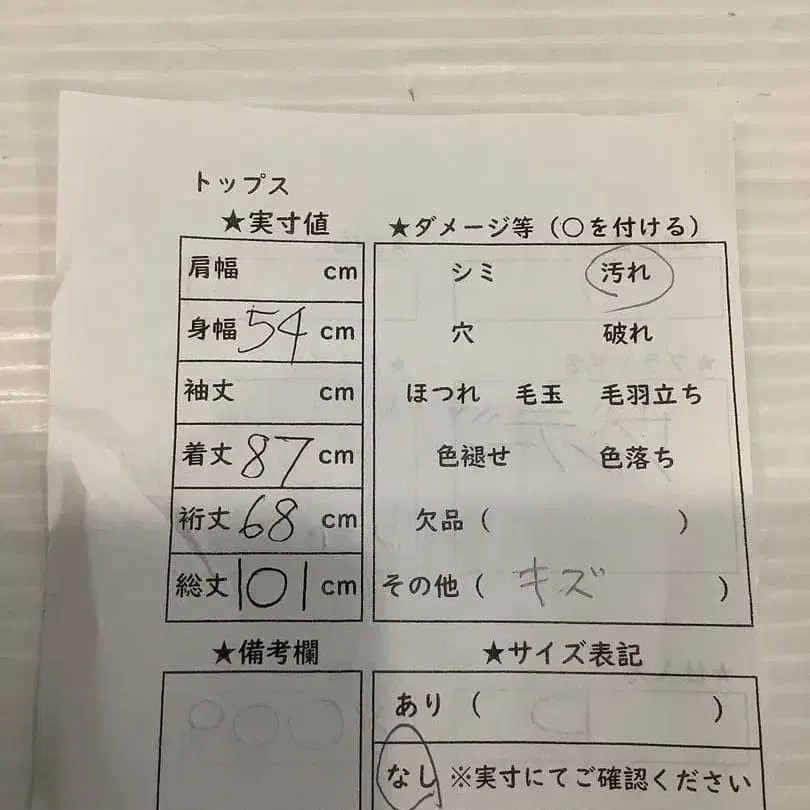 トップス
★実寸値
肩幅 cm
身幅 54 cm
袖丈 cm
着丈 87 cm
裄丈 68 cm
総丈 101 cm
★備考欄
★ダメージ等（〇を付ける）
シミ 汚れ
穴 破れ
ほつれ 毛玉 毛羽立ち
色褪せ 色落ち
欠品（ ）
その他（ キズ ）
★サイズ表記
あり（ ）
なし ※実寸にてご確認ください